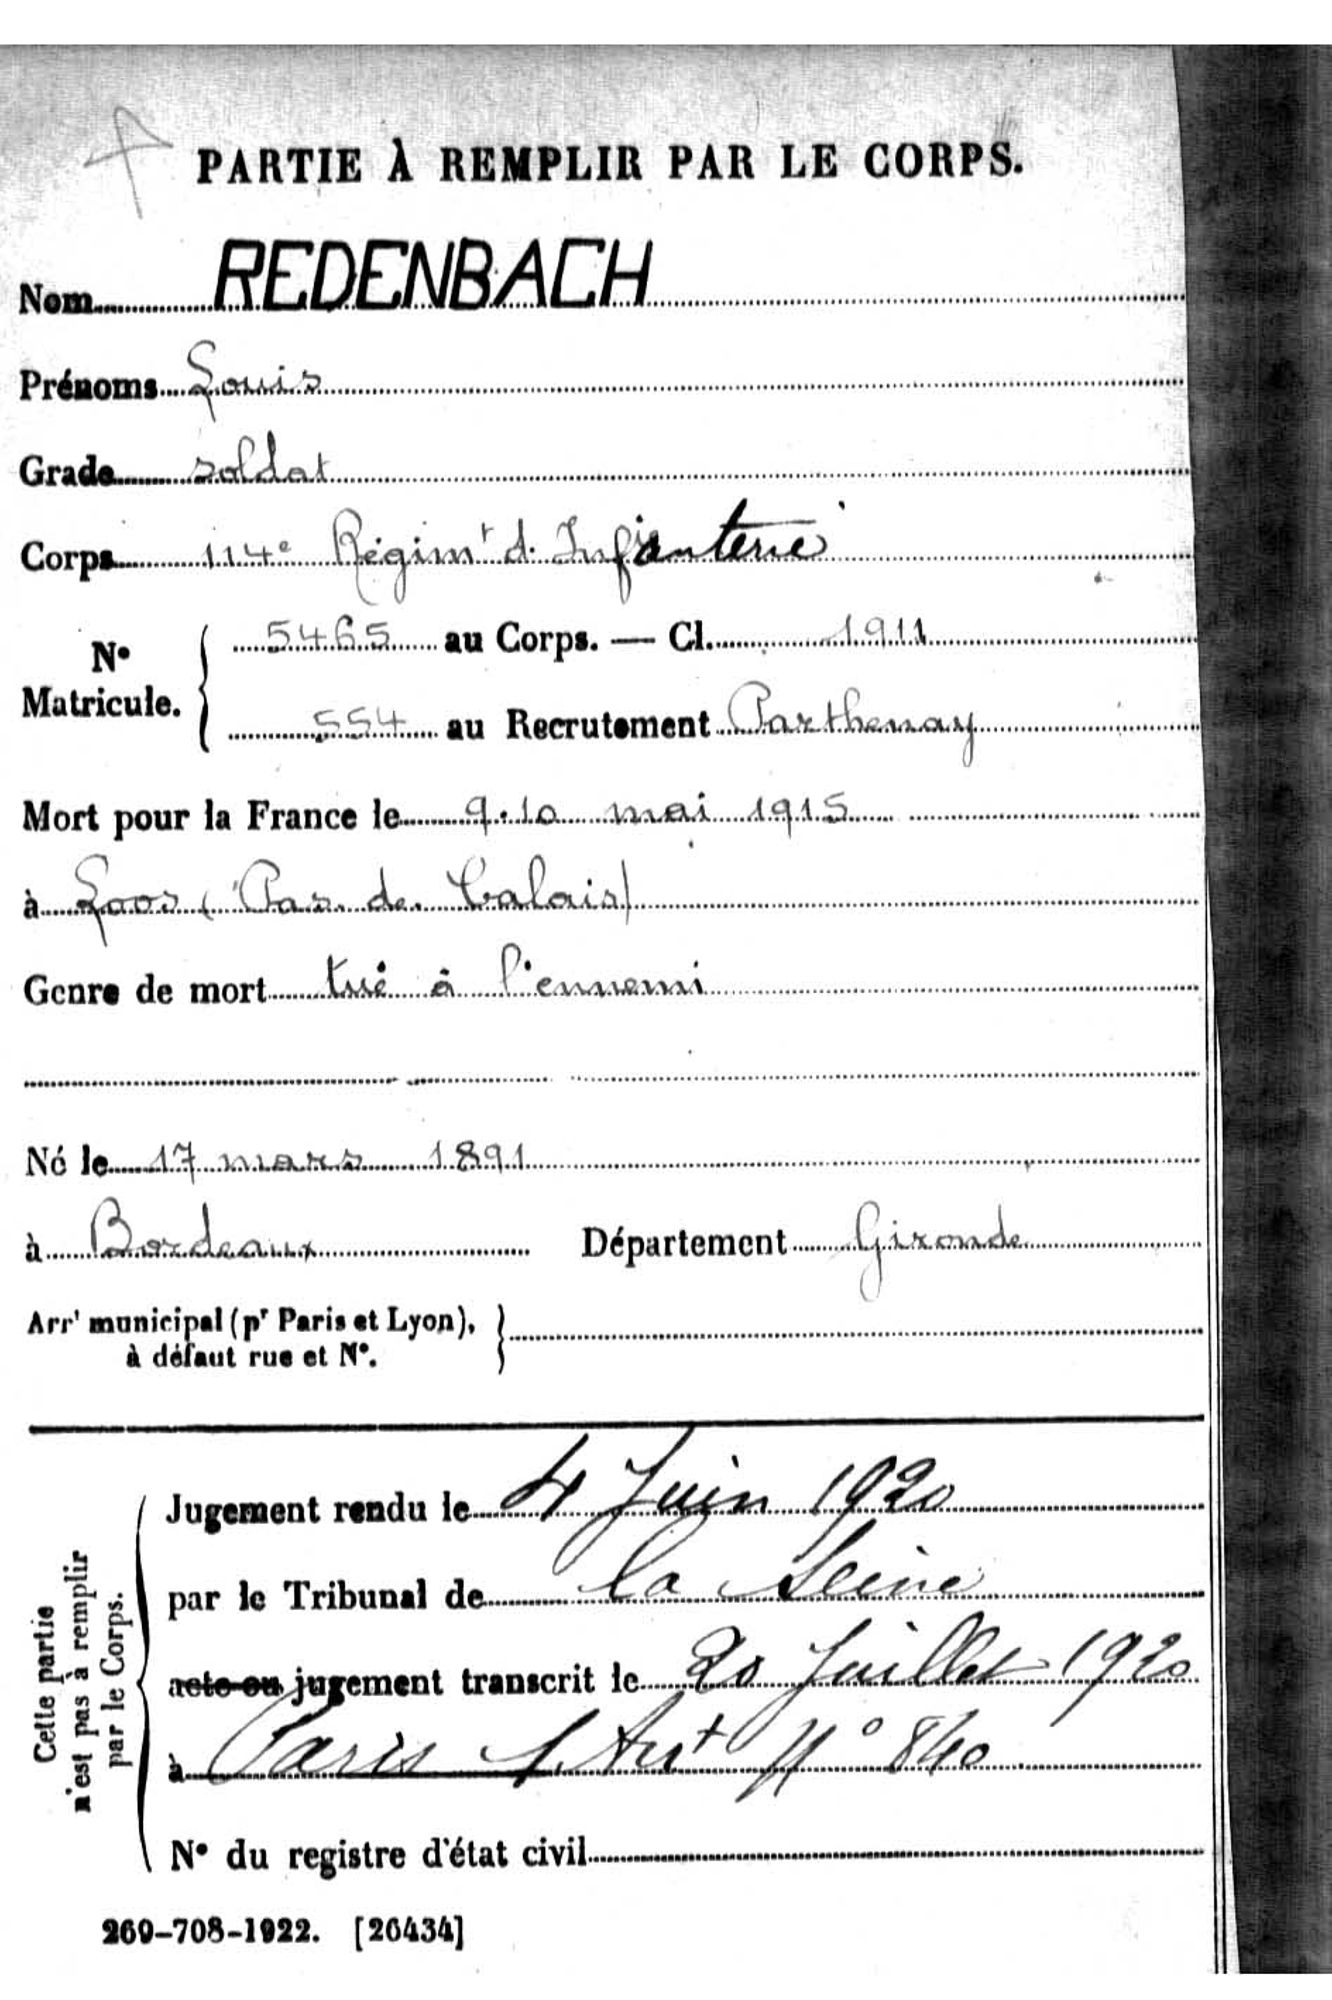 PARTIE À REMPLIR PAR LE CORPS.
Nom REDENBACH
Prénoms Louis
Grade soldat
Corps 114e Régimt d. Infanterie
No Matricule. 5465 au Corps. — Cl. 1911
554 au Recrutement Parthenay
Mort pour la France le 9.10 mai 1915
à Loos (Pas. de. Calais)
Genre de mort tué à l'ennemi
Né le 17 mars 1891
à Bordeaux Département Gironde
Arrt municipal (pr Paris et Lyon),
à défaut rue et No.
Cette partie
n'est pas à remplir
par le Corps.
Jugement rendu le 4 Juin 1920
par le Tribunal de la Seine
acte ou jugement transcrit le 20 Juillet 1920
à Paris Art No 840
No du registre d'état civil
269-708-1922. [26434]